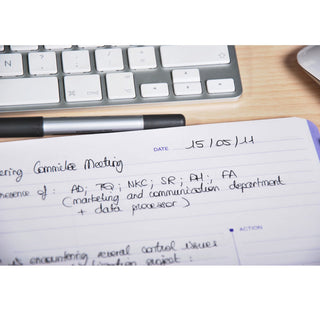 DATE 15/05/11
ering Commitee Meeting
resence of : AD; TQ; NKC; SR; DH; FA
(marketing and communication department
+ data processor)
ACTION
encountering several control issues
project :